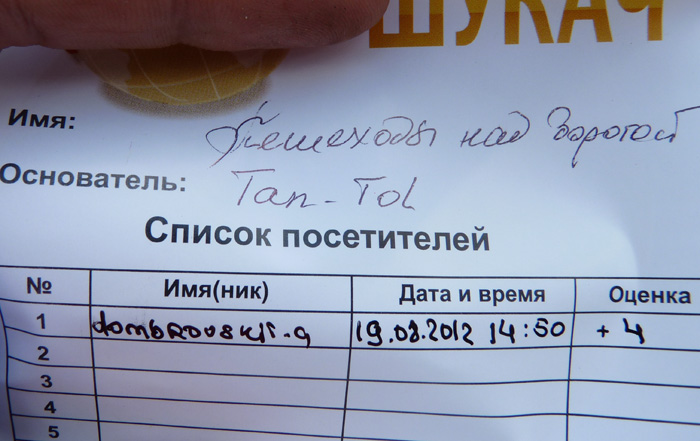 ШУКАЧ
Имя: Пешеходы над дорогой
Основатель: Tan-Tol
Список посетителей
№ Имя(ник) Дата и время Оценка
1 dombrovskij-g 19.08.2012 14:50 +4
2
3
4
5